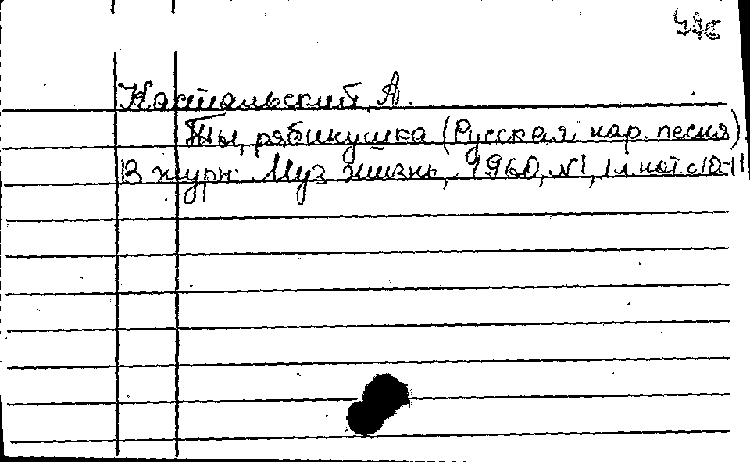 Кастальский, А.
Ты, рябинушка (Русская нар. песня)
В журн. Муз. жизнь, 1960, №1, 1л. нот с10-11